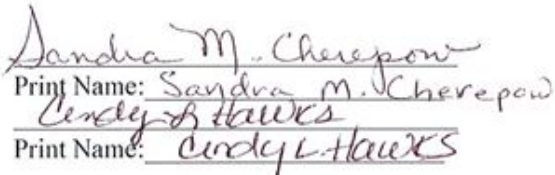 Sandra M. Cherepow
Print Name: Sandra M. Cherepow
Cindy L Hawks
Print Name: Cindy L. Hawks